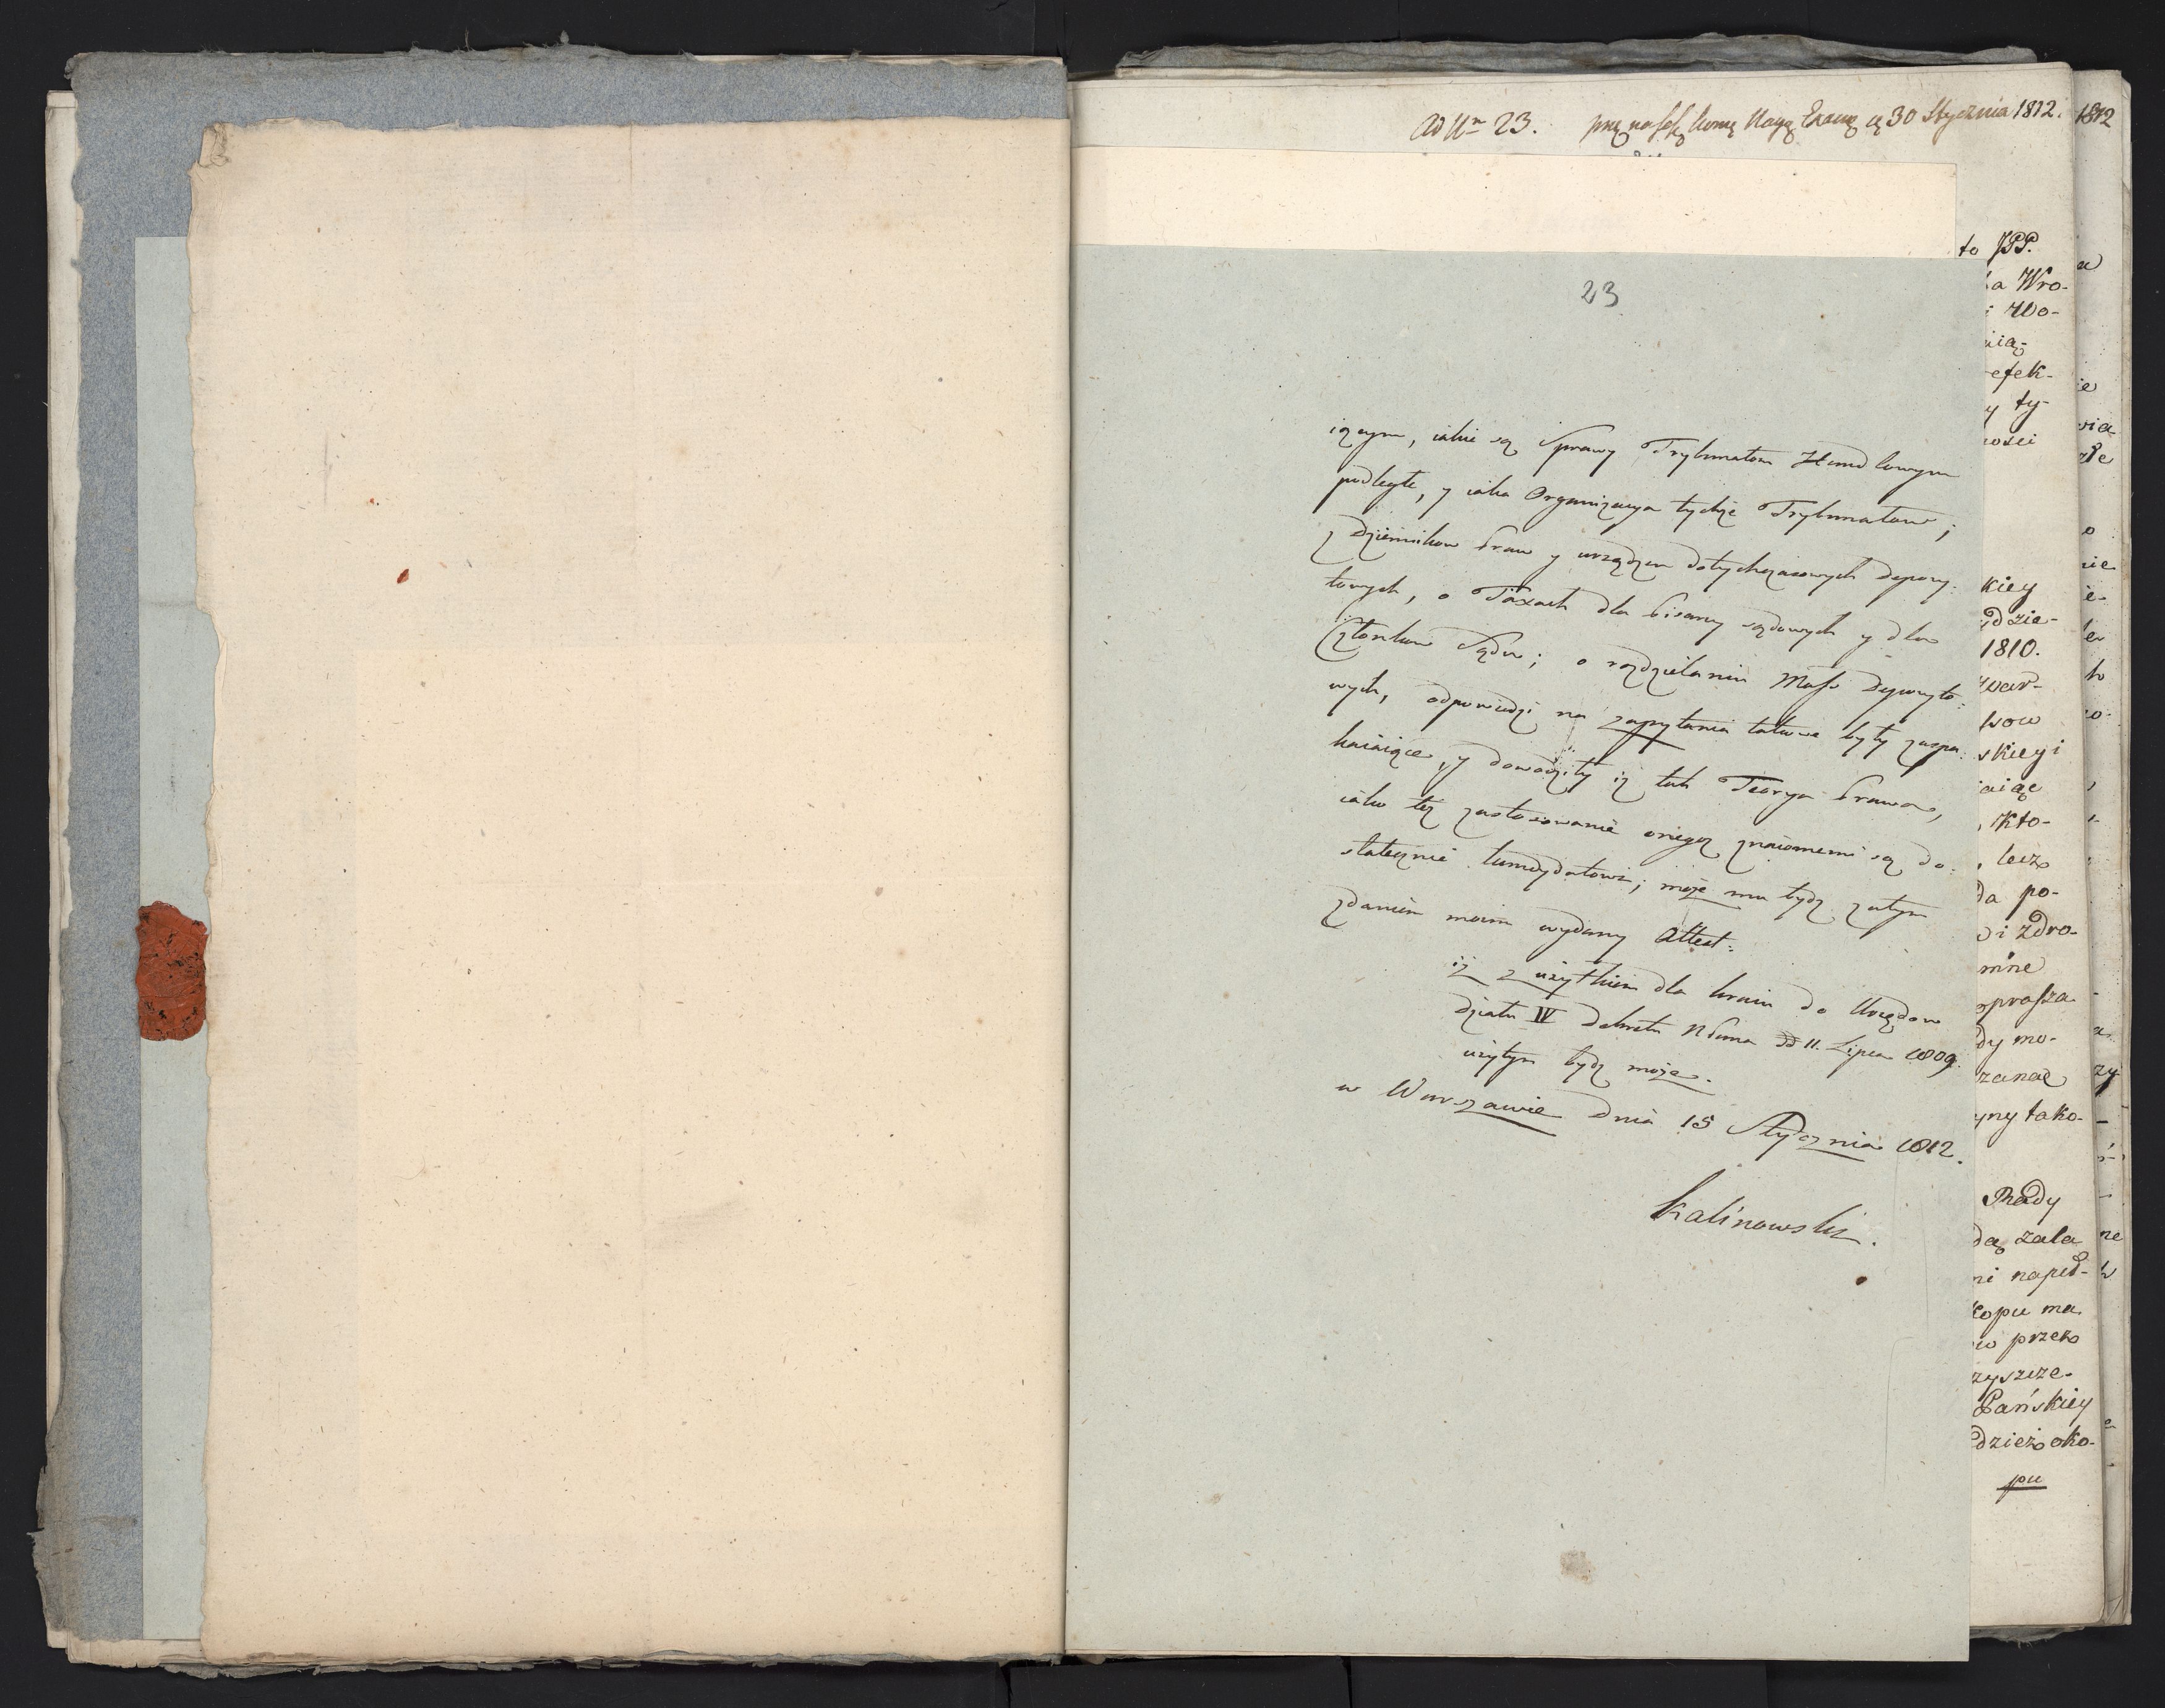 Ad Nr 23. 30 Stycznia 1812.
1812
23
iącym, iakie są Sprawy Trybunałom Handlowym
podległe, y iaka Organizacya tychże Trybunałow;
z Dzienników Praw y urządzen dotychczasowych depozy:
towych, o Taxach dla Pisarzy sądowych y dla
Członkow Sądu; o rozdzielaniu Mass Depozyto:
wych, odpowiedzi na zapytania takowe były zaspa:
kaiaiące, y dowodziły iż tak Teorya Prawa,
iako też zastosowanie onegoż znaiomemi są do:
statecznie kandydatowi; może mu bydź zatym
zdaniem moim wydany Attest:
iż z użytkiem dla kraiu do Urzędow
działu IV Dekretu NPana dd 11. Lipca 1809
użytym bydź może.
w Warszawie dnia 15 Stycznia 1812.
Kalinowski.
to JPP.
a Wro-
i Wo-
nią-
efek-
y ty-
ności
kiey
dzie-
1810.
war-
sow
skiey i
aiąc
, Kto-
, lecz
da po-
i Zdro-
mne
sprasza
dy mo-
zanać
yny tako-
Rady
dą zala
ni naped-
kopu ma
przez
zyszcze-
Pańskiey
dzież oko-
pu